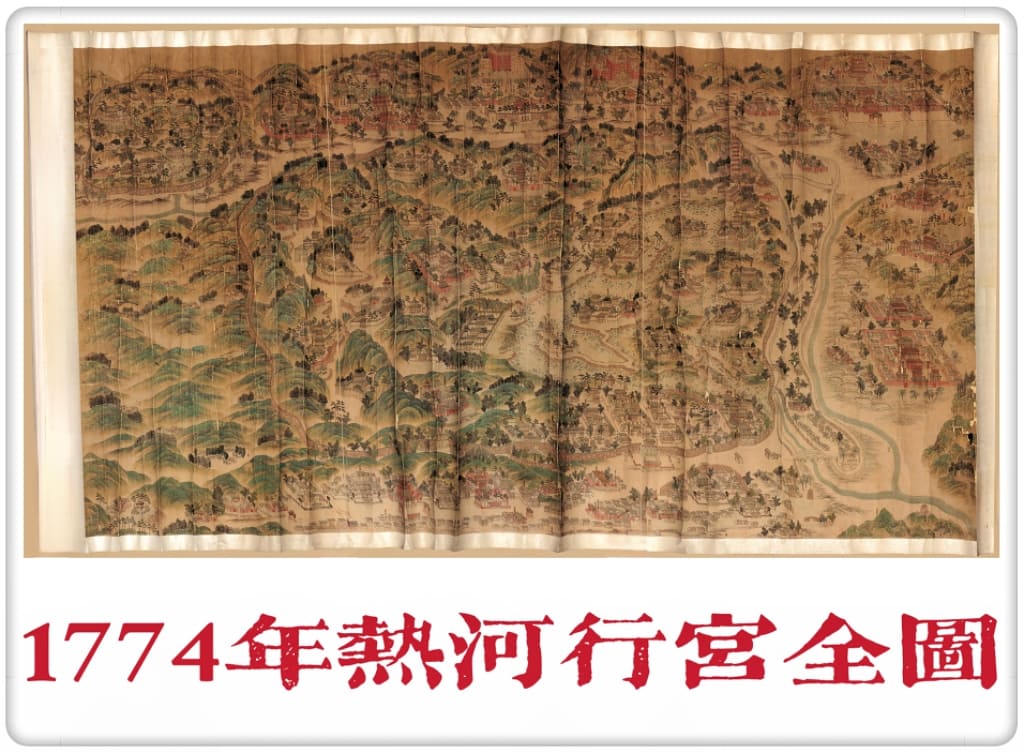 1774年熱河行宮全圖